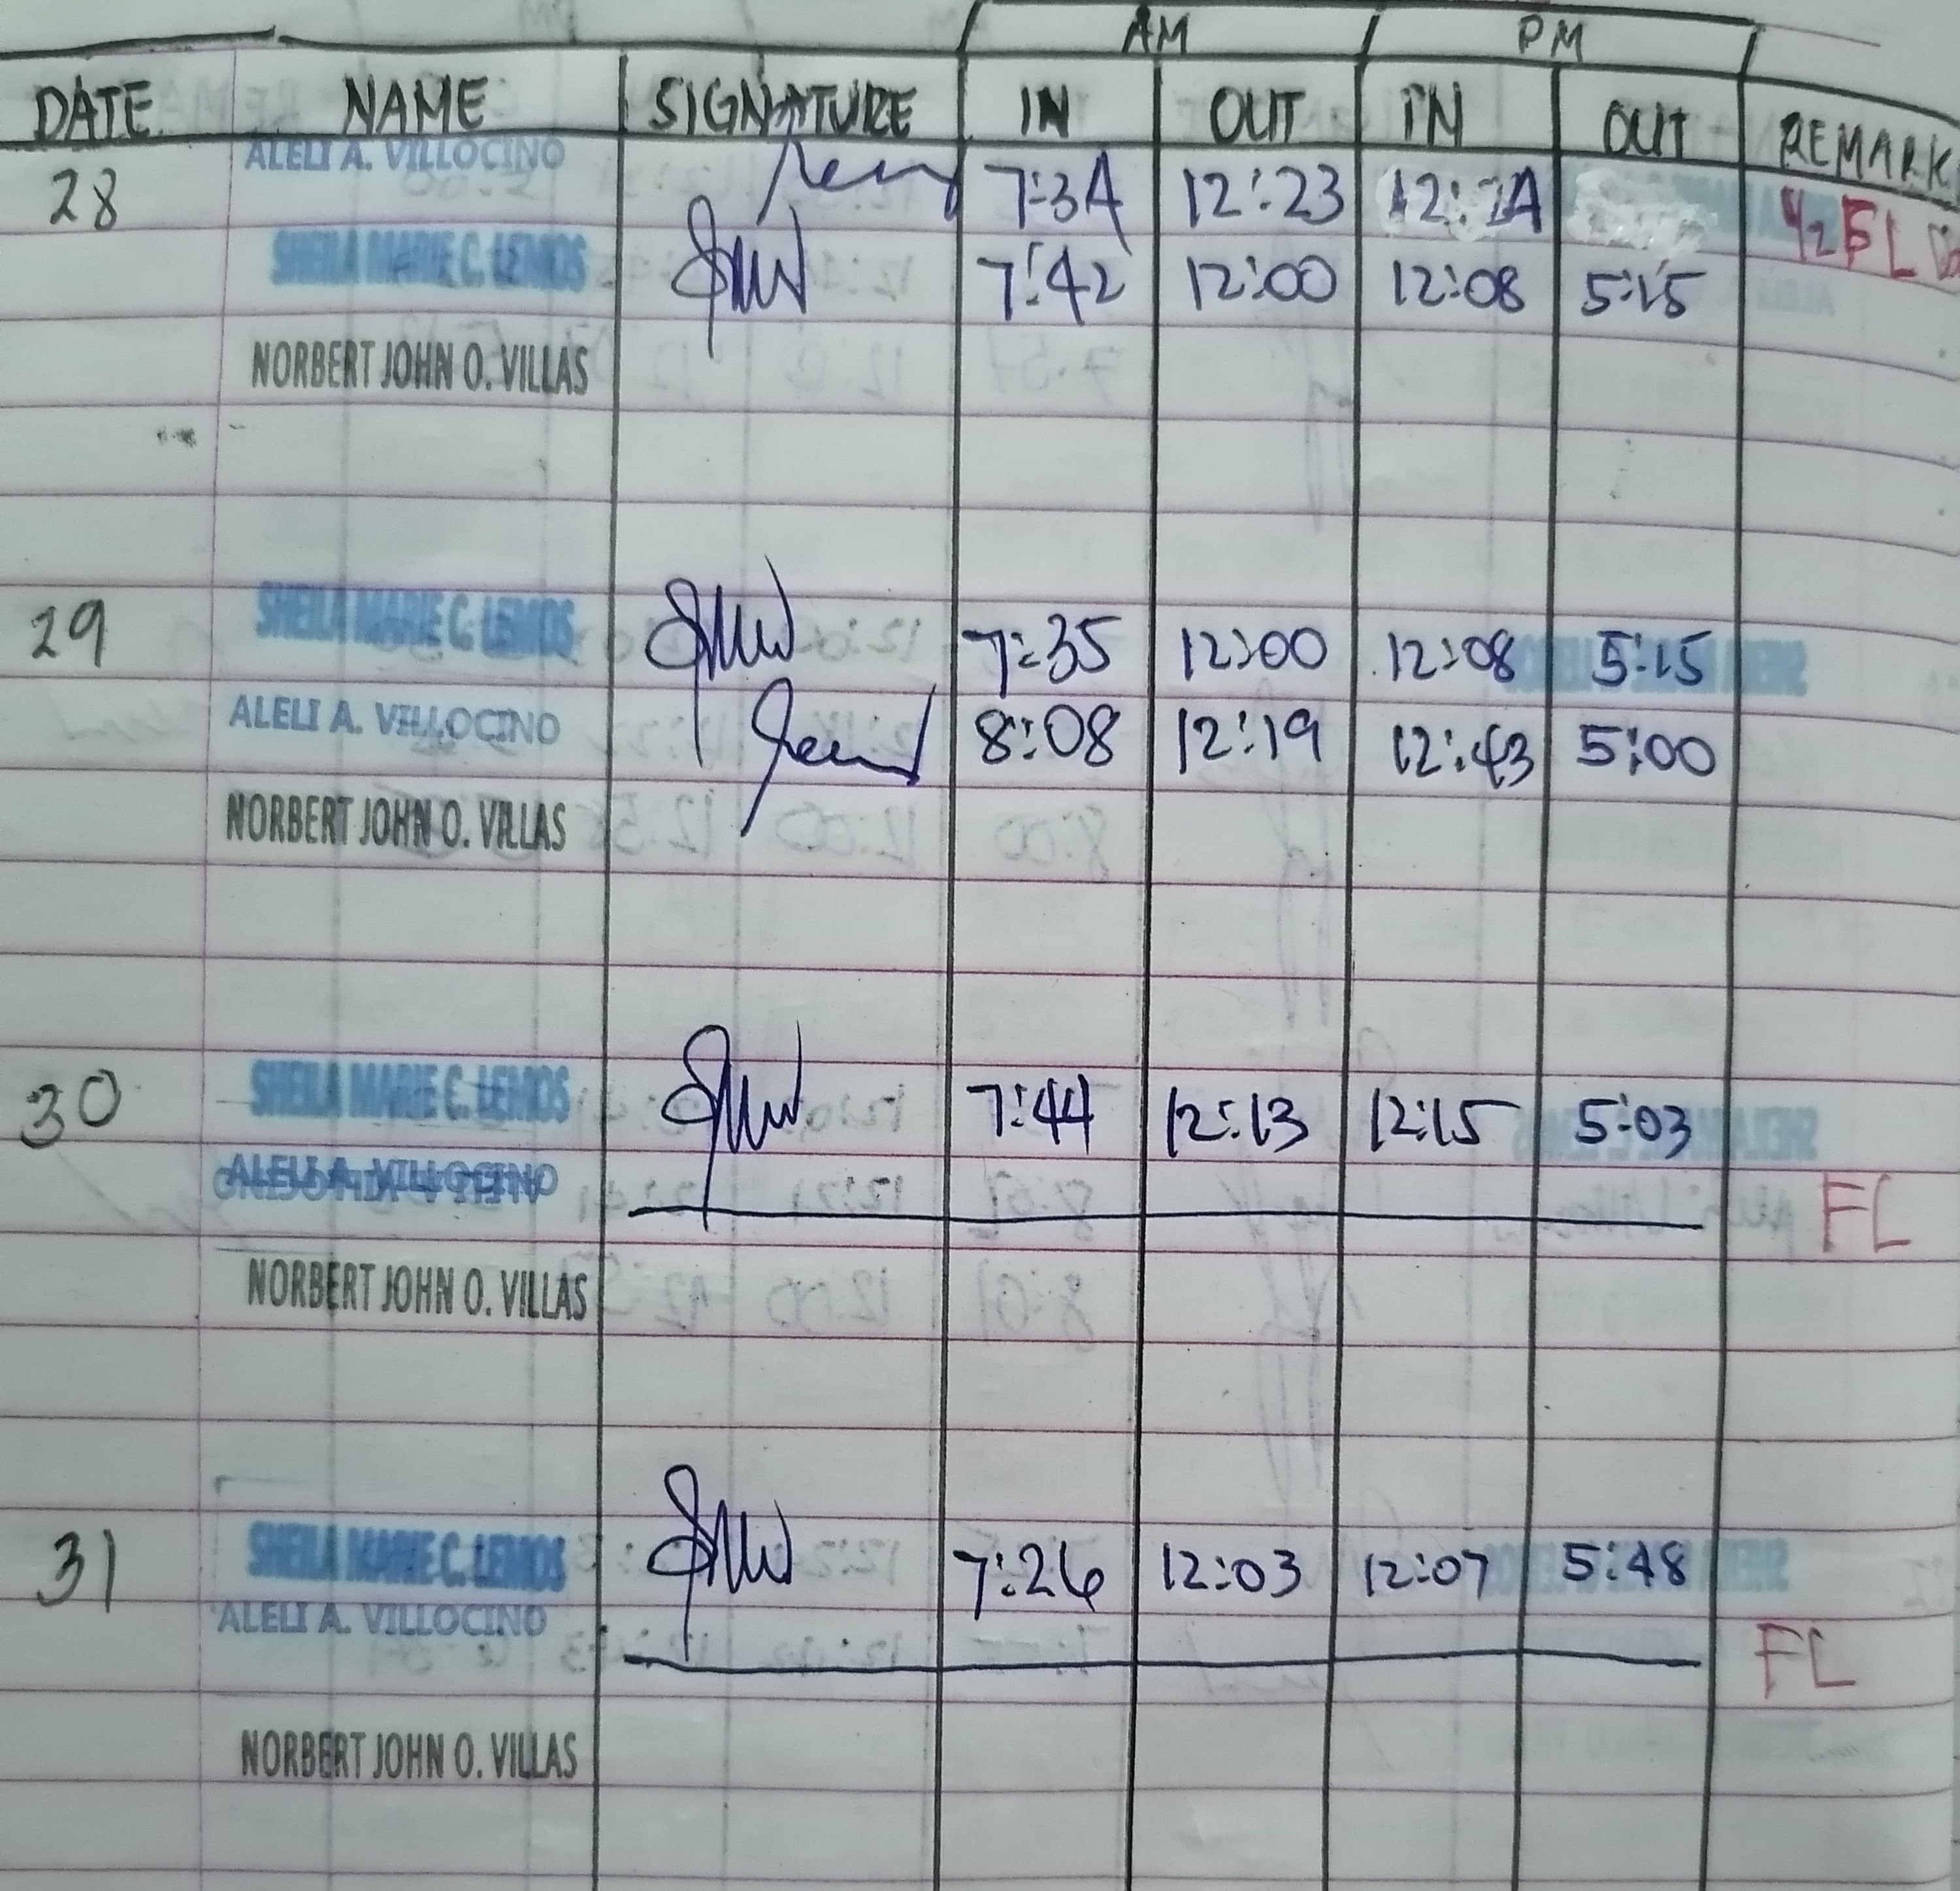 AM PM
DATE NAME SIGNATURE IN OUT IN OUT REMARK
28 ALELI A. VILLOCINO 7:34 12:23 1/2 FL
SHEILA MARIE C. LEMOS 7:42 12:00 12:08 5:15
NORBERT JOHN O. VILLAS
29 SHEILA MARIE C. LEMOS 7:35 12:00 12:08 5:15
ALELI A. VILLOCINO 8:08 12:19 12:43 5:00
NORBERT JOHN O. VILLAS
30 SHEILA MARIE C. LEMOS 7:44 12:13 12:15 5:03
ALELI A. VILLOCINO FL
NORBERT JOHN O. VILLAS
31 SHEILA MARIE C. LEMOS 7:26 12:03 12:07 5:48
ALELI A. VILLOCINO FL
NORBERT JOHN O. VILLAS